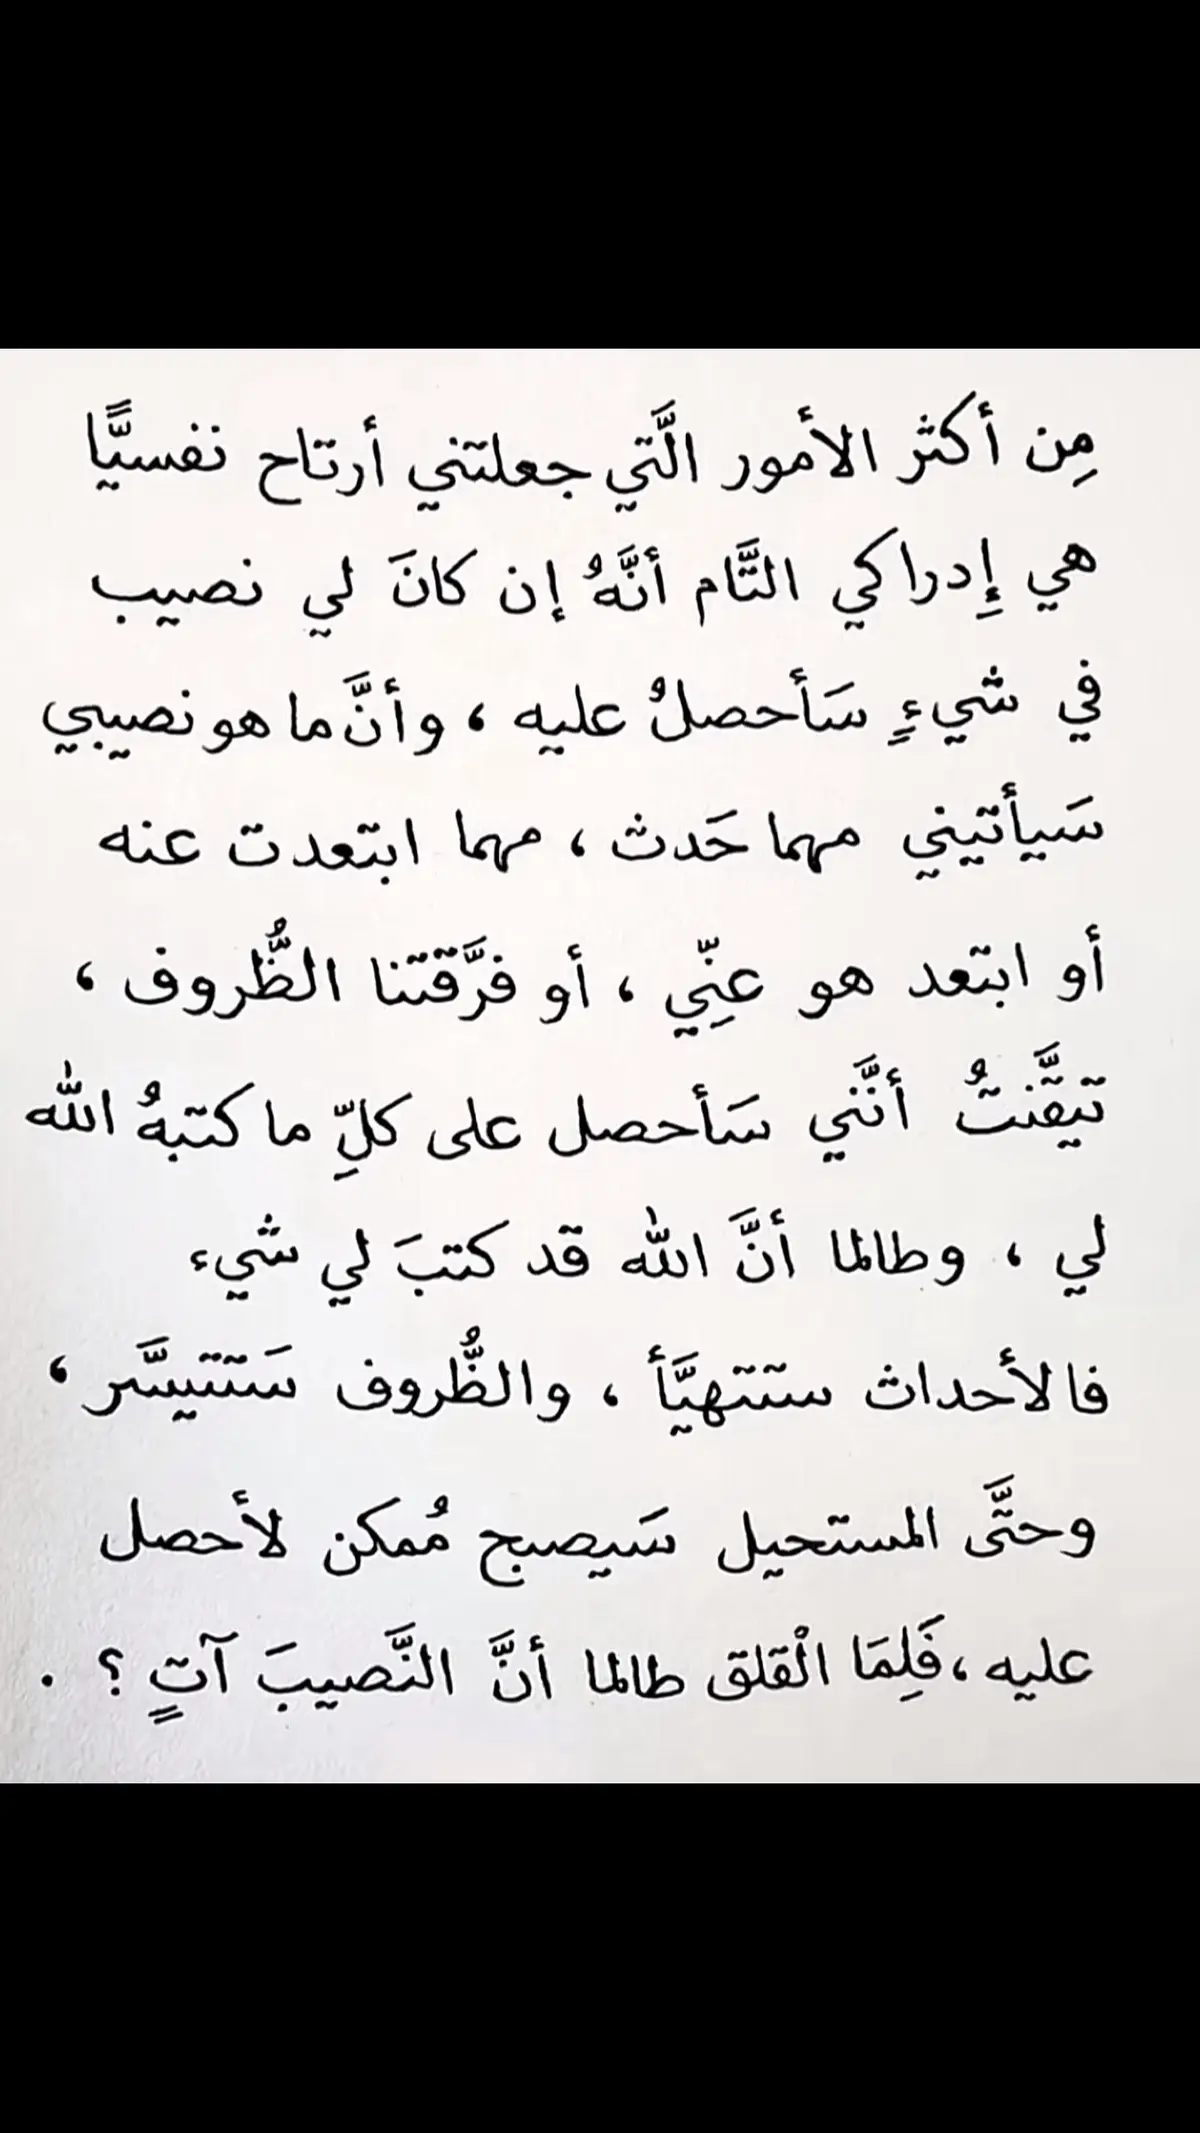 مِن أكثر الأمور الَّتي جعلتني أرتاح نفسيًّا
هي إِدراكي التَّام أنَّهُ إن كانَ لي نصيب
في شيءٍ سَأحصلُ عليه ، وأنَّ ما هو نصيبي
سَيأتيني مهما حَدث ، مهما ابتعدت عنه
أو ابتعد هو عنِّي ، أو فرَّقتنا الظُّروف ،
تيقَّنتُ أنَّني سَأحصل على كلِّ ما كتبهُ الله
لي ، وطالما أنَّ الله قد كتبَ لي شيء
فالأحداث ستتهيَّأ ، والظُّروف سَتتيسَّر ،
وحتَّى المستحيل سَيصبح مُمكن لأحصل
عليه ، فَلِمَا الْقلق طالما أنَّ النَّصيبَ آتٍ ؟ .